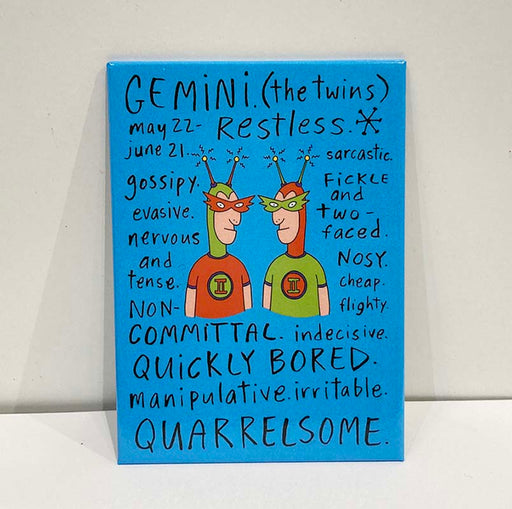 GEMINI. (the twins)
may 22- Restless.
june 21. sarcastic.
gossipy. FICKLE
and
evasive. two-
faced.
nervous
and
tense. NOSY.
cheap.
NON- flighty.
COMMITTAL. indecisive.
QUICKLY BORED.
manipulative. irritable.
QUARRELSOME.
II
II